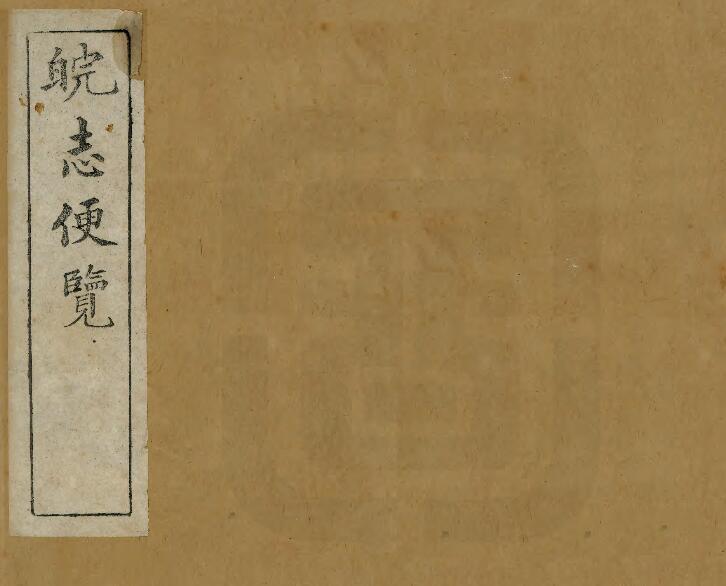 皖志便覽